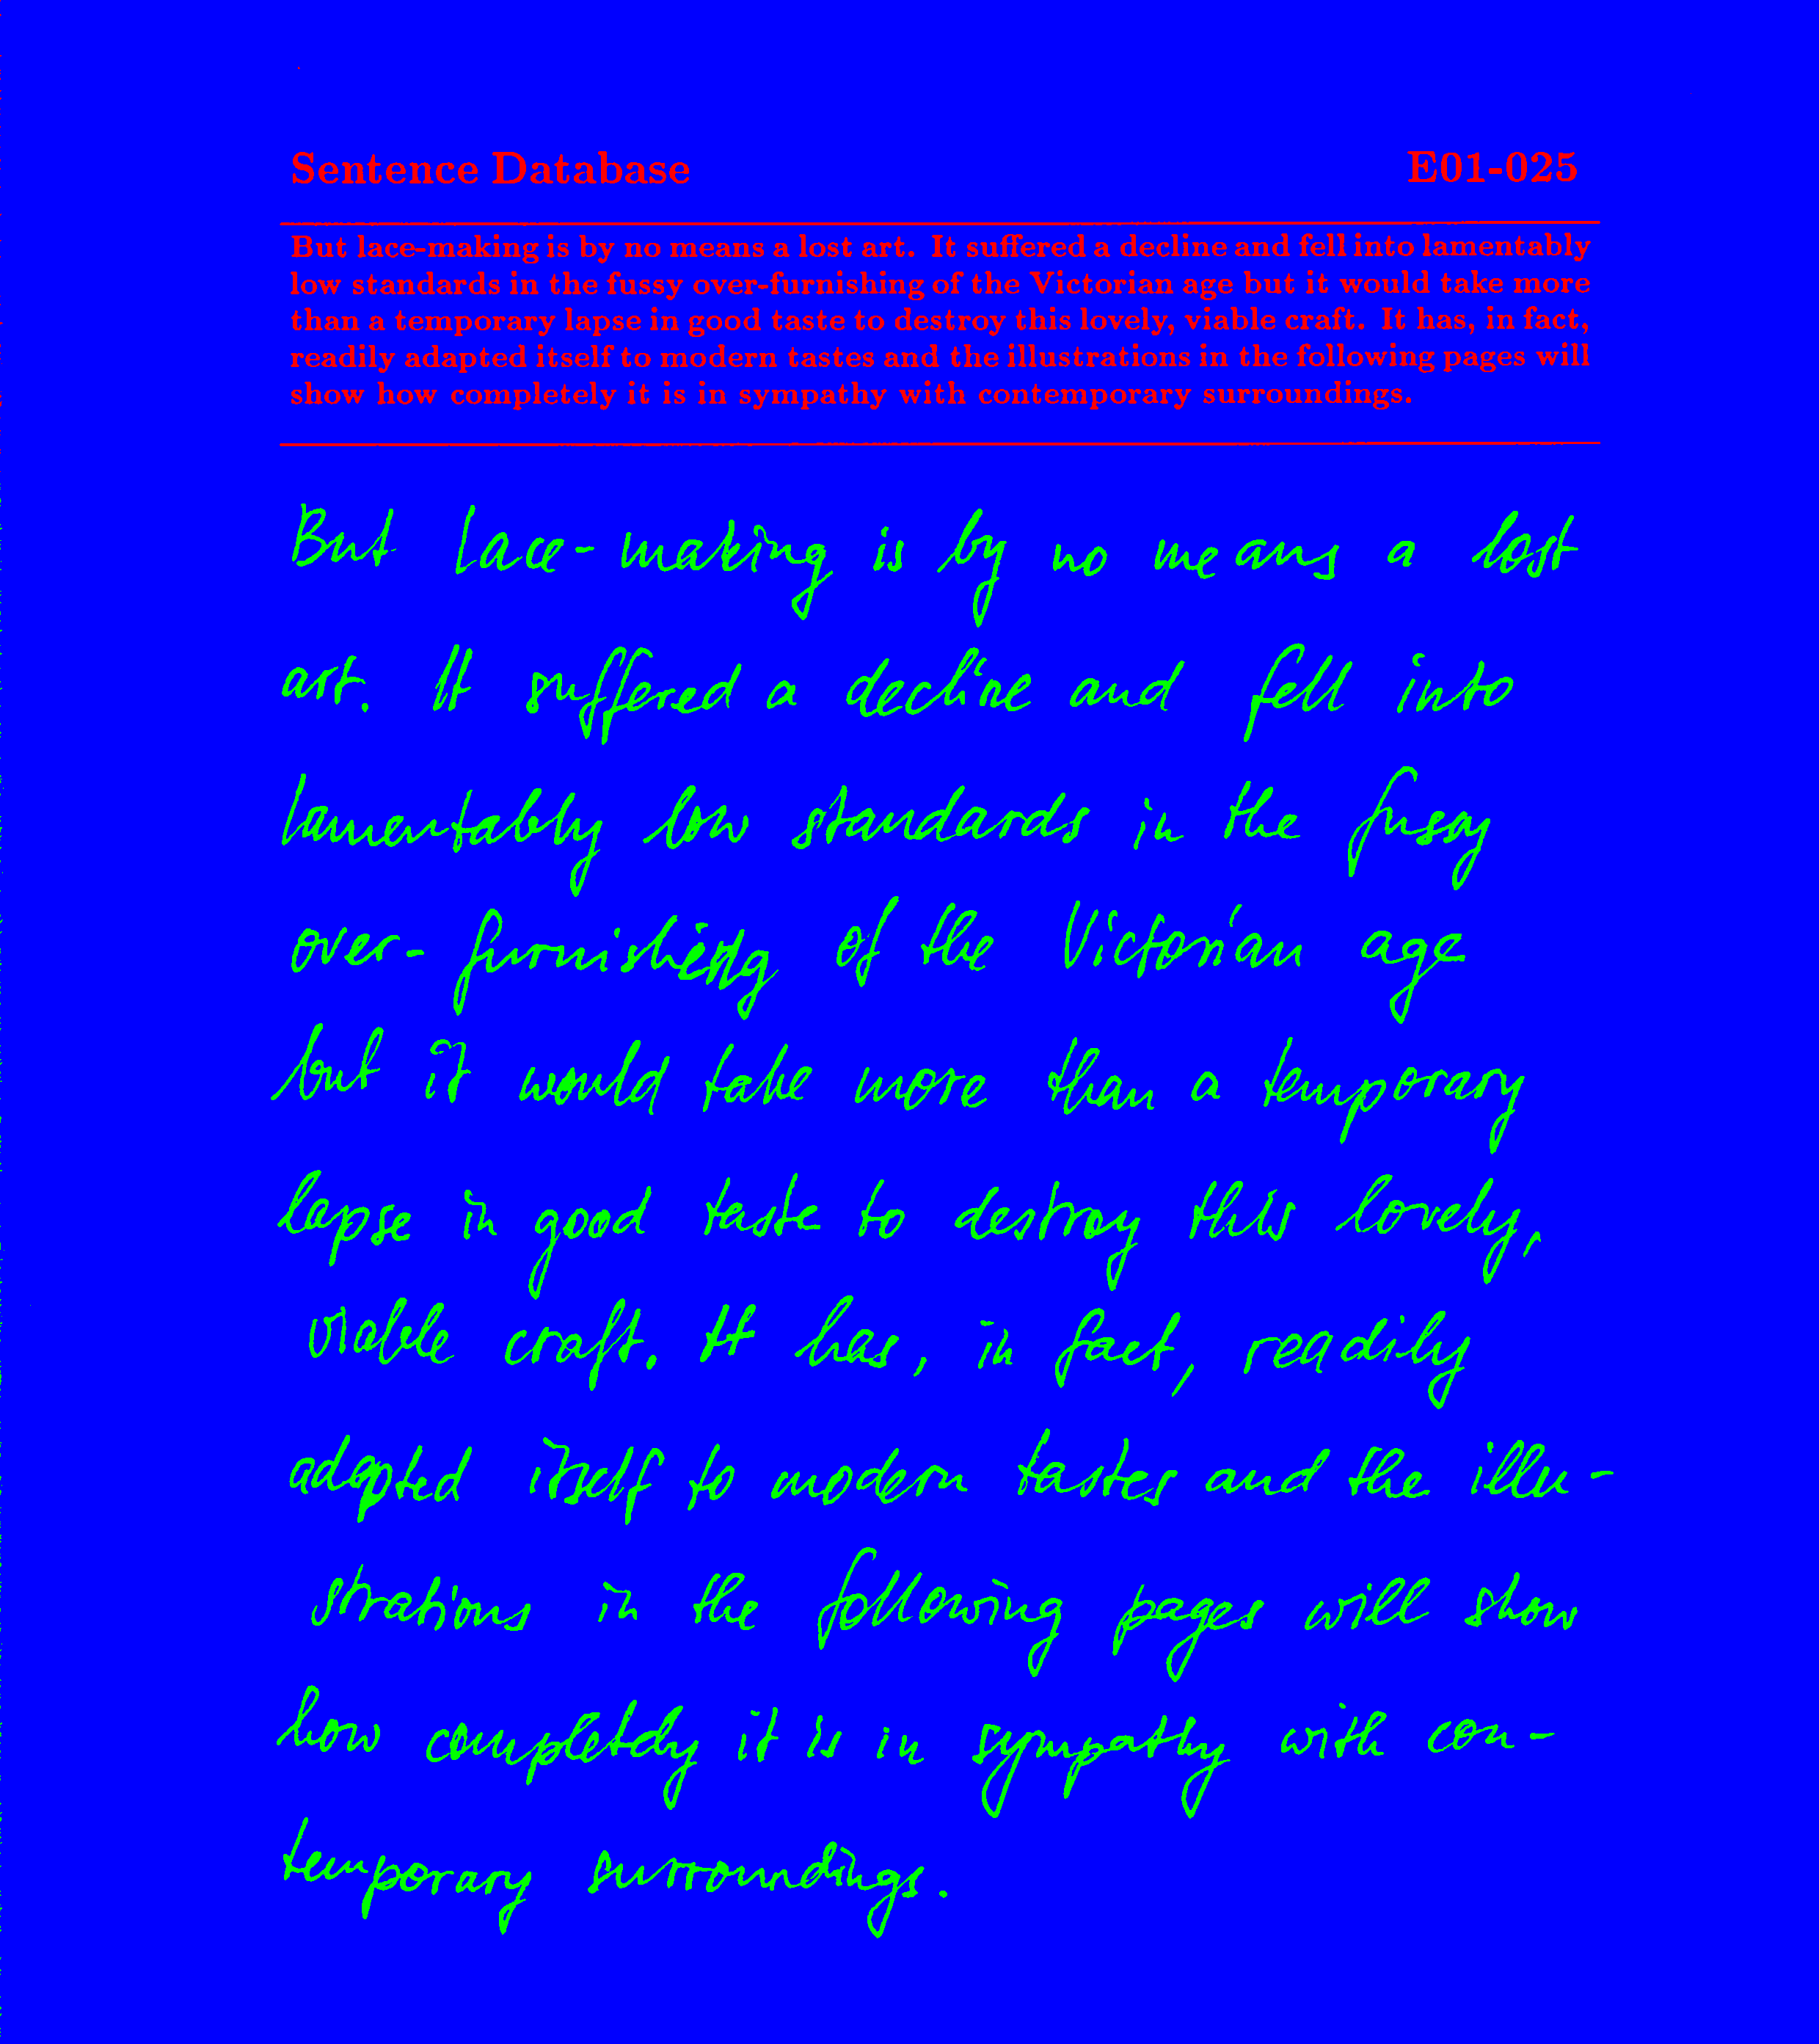 Sentence Database E01-025
But lace-making is by no means a lost art. It suffered a decline and fell into lamentably
low standards in the fussy over-furnishing of the Victorian age but it would take more
than a temporary lapse in good taste to destroy this lovely, viable craft. It has, in fact,
readily adapted itself to modern tastes and the illustrations in the following pages will
show how completely it is in sympathy with contemporary surroundings.
But lace-making is by no means a lost
art. It suffered a decline and fell into
lamentably low standards in the fussy
over-furnishing of the Victorian age
but it would take more than a temporary
lapse in good taste to destroy this lovely,
viable craft. It has, in fact, readily
adapted itself to modern tastes and the illu-
strations in the following pages will show
how completely it is in sympathy with con-
temporary surroundings.